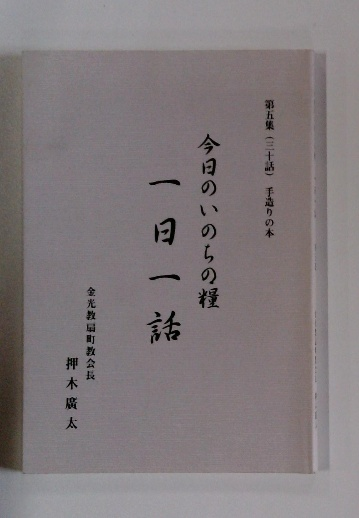 第五集（三十話） 手造りの本
今日のいのちの糧
一日一話
金光教扇町教会長
押木廣太